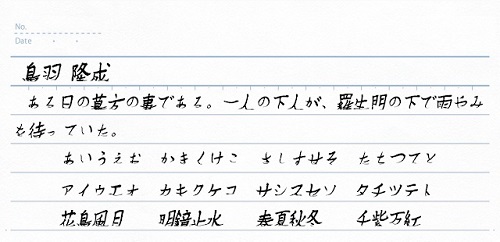 No.
Date ・ ・
鳥羽 隆成
ある日の暮方の事である。一人の下人が、羅生門の下で雨やみ
を待っていた。
あいうえお かきくけこ さしすせそ たちつてと
アイウエオ カキクケコ サシスセソ タチツテト
花鳥風月 明鏡止水 春夏秋冬 千紫万紅